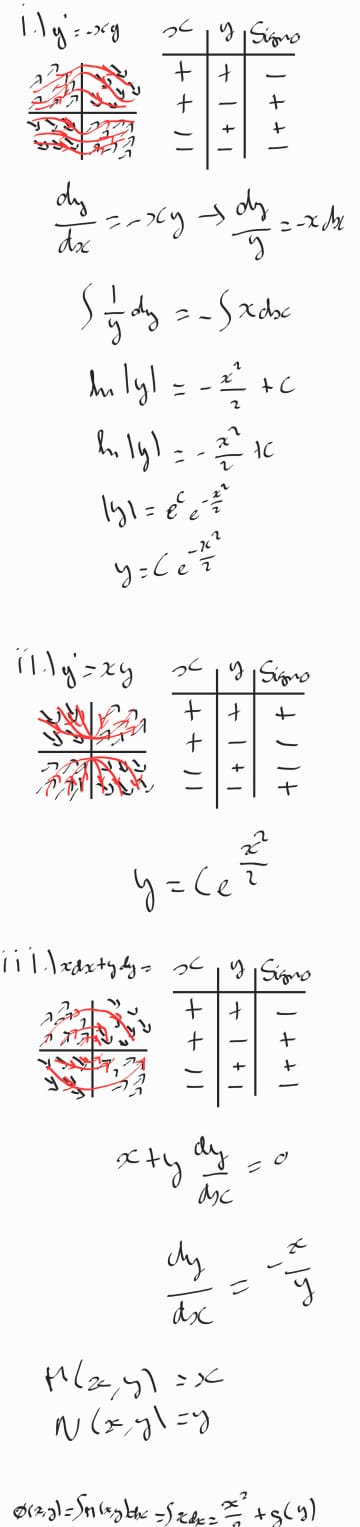 i.) y' = -xy
x | y | Signo
+ | + | -
+ | - | +
- | + | +
- | - | -
dy/dx = -xy → dy/y = -x dx
∫ 1/y dy = -∫ x dx
ln |y| = - x²/2 + C
ln |y| = - x²/2 + C
|y| = e^C e^(-x²/2)
y = C e^(-x²/2)
ii.) y' = xy
x | y | Signo
+ | + | +
+ | - | -
- | + | -
- | - | +
y = C e^(x²/2)
iii.) xdx + ydy =
x | y | Signo
+ | + | -
+ | - | +
- | + | +
- | - | -
x + y dy/dx = 0
dy/dx = - x/y
M(x,y) = x
N(x,y) = y
ø(x,y) = ∫M(x,y)dx = ∫xdx = x²/2 + g(y)